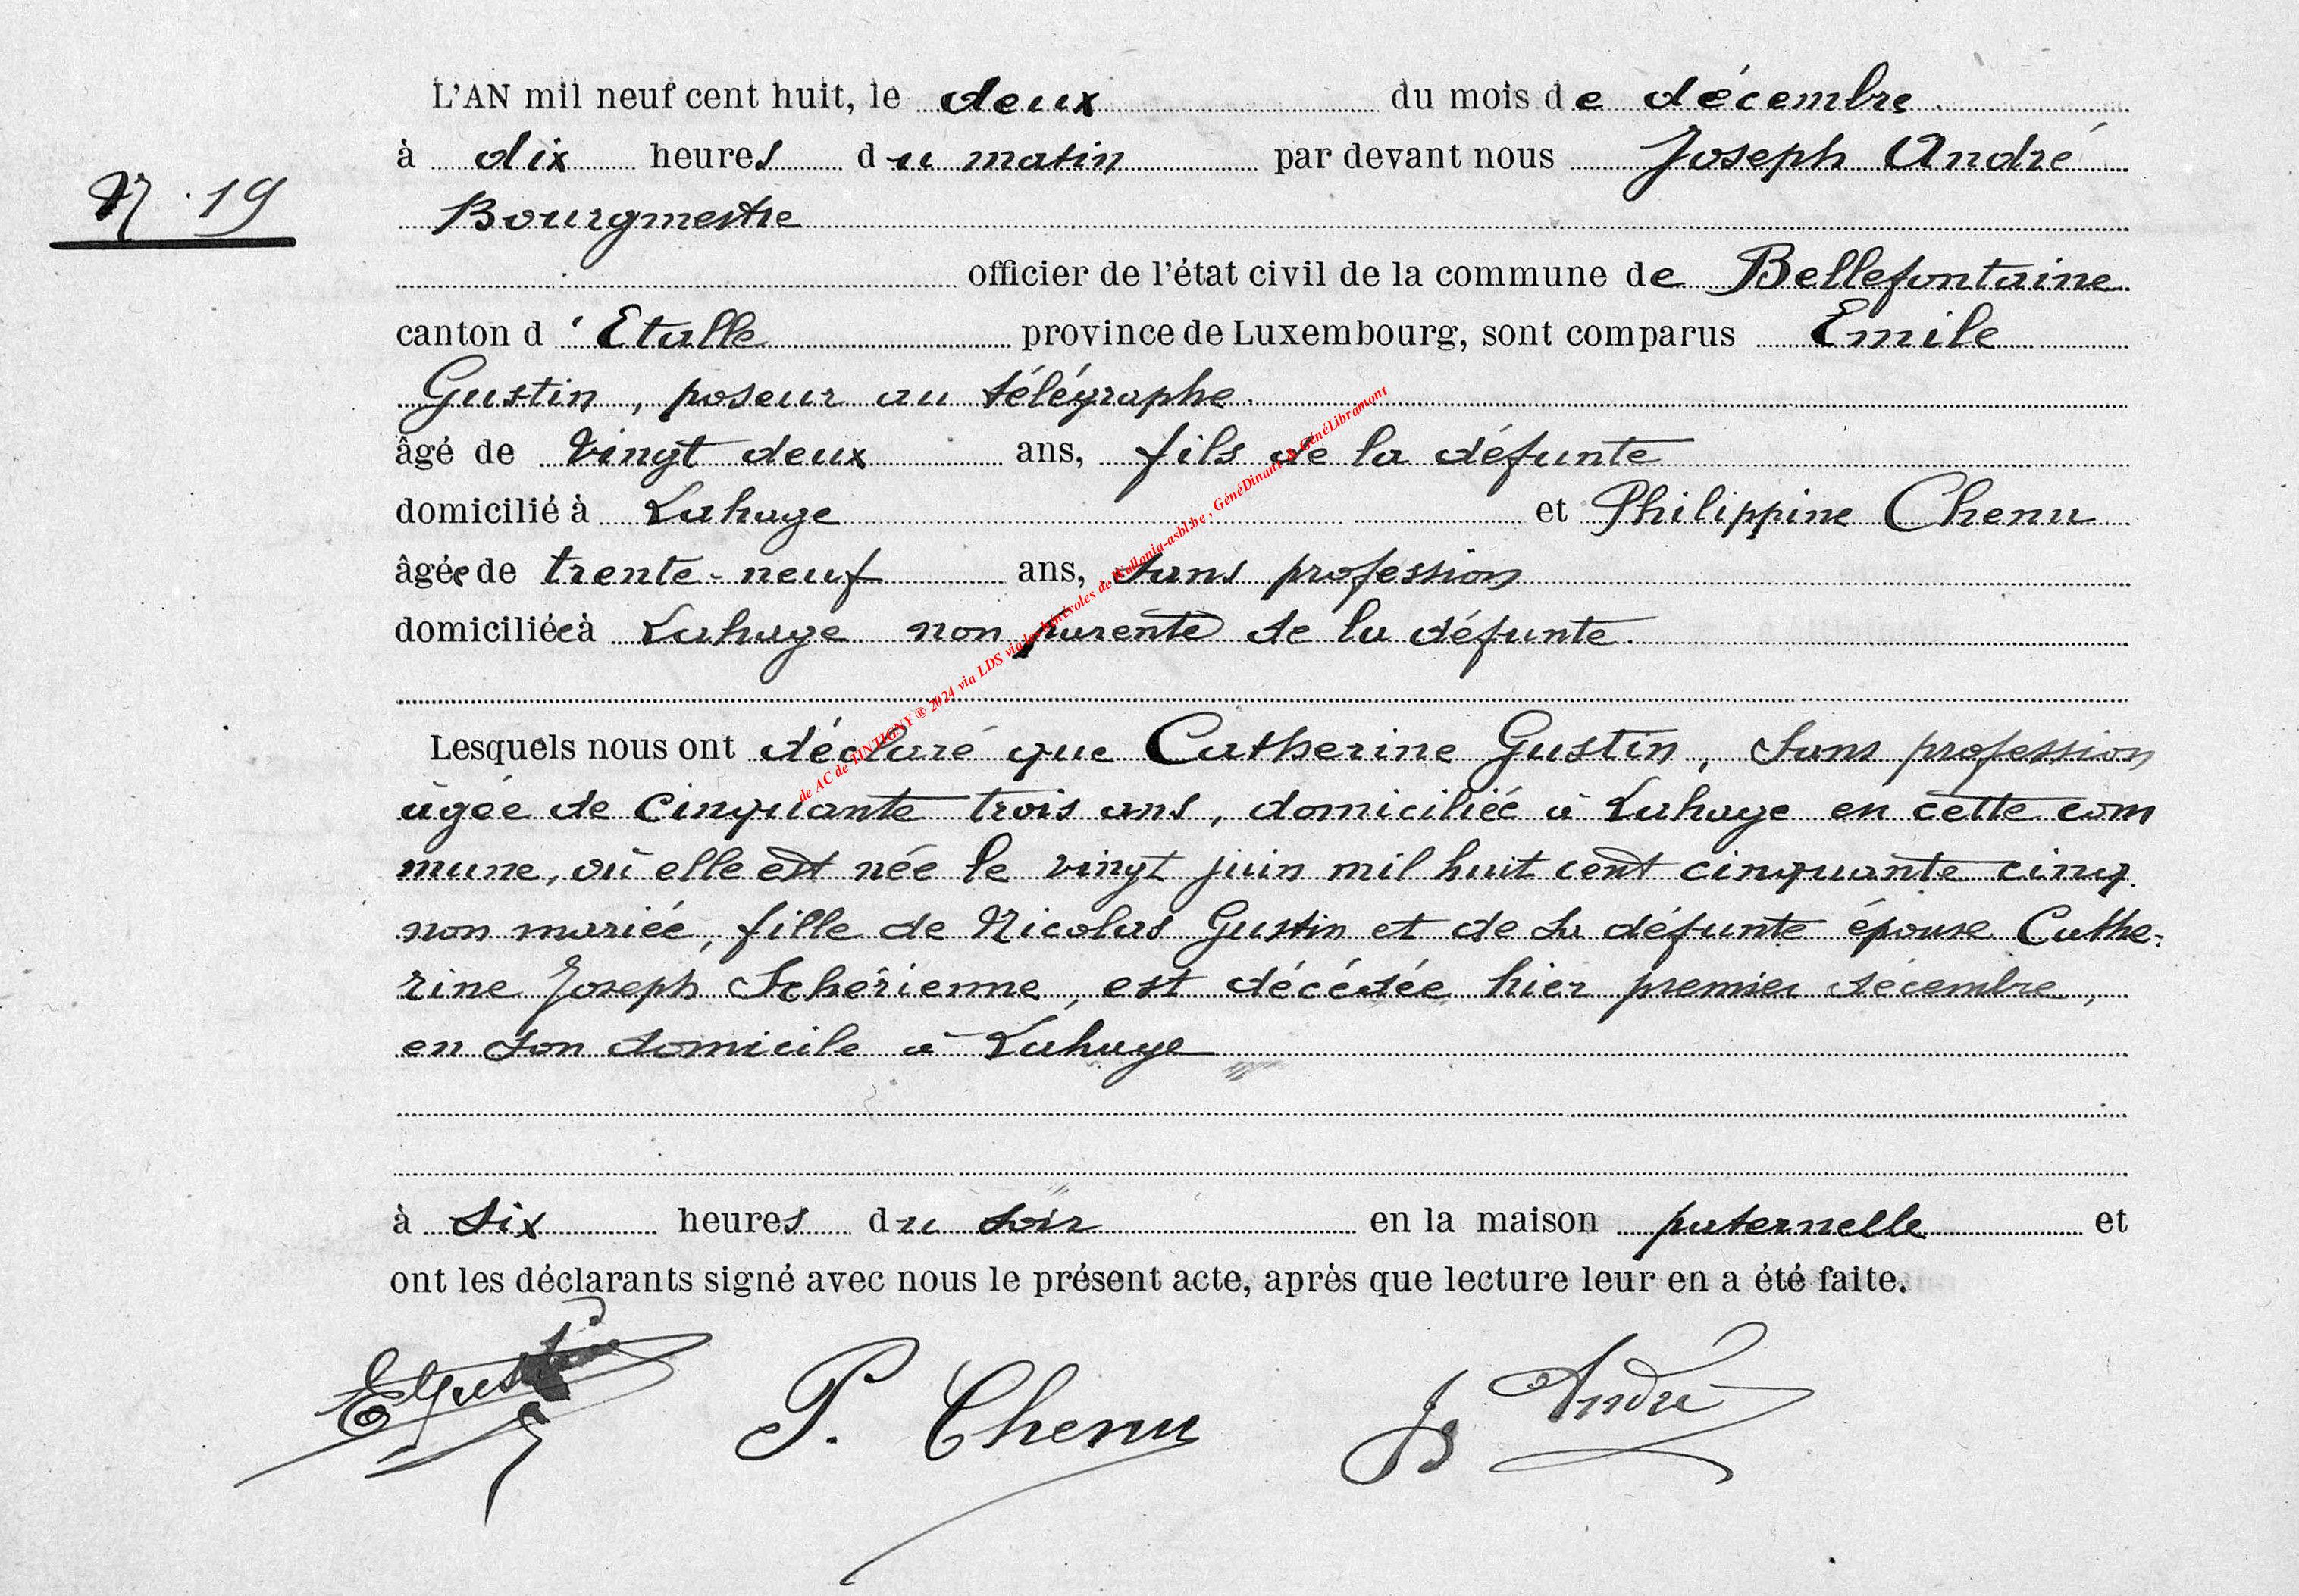 L'AN mil neuf cent huit, le deux du mois de décembre
à dix heures du matin par devant nous Joseph André
N. 19
Bourgmestre
officier de l'état civil de la commune de Bellefontaine
canton d'Etalle province de Luxembourg, sont comparus Emile
Gustin, poseur au télégraphe
âgé de vingt deux ans, fils de la défunte
domicilié à Lahage et Philippine Chenu
âgée de trente-neuf ans, sans profession
domiciliée à Lahage non parente de la défunte.
de AC de TINTIGNY ® 2024 via LDS via les bénévoles de Wallonia-asbl.be, GénéDinant & GénéLibramont
Lesquels nous ont déclaré que Catherine Gustin, sans profession
âgée de cinquante trois ans, domiciliée à Lahage en cette com
mune, où elle est née le vingt juin mil huit cent cinquante cinq
non mariée, fille de Nicolas Gustin et de sa défunte épouse Cathe-
rine Joseph Schérienne, est décédée hier premier décembre,
en son domicile à Lahage
à six heures du soir en la maison paternelle et
ont les déclarants signé avec nous le présent acte, après que lecture leur en a été faite.
EGustin P. Chenu J André